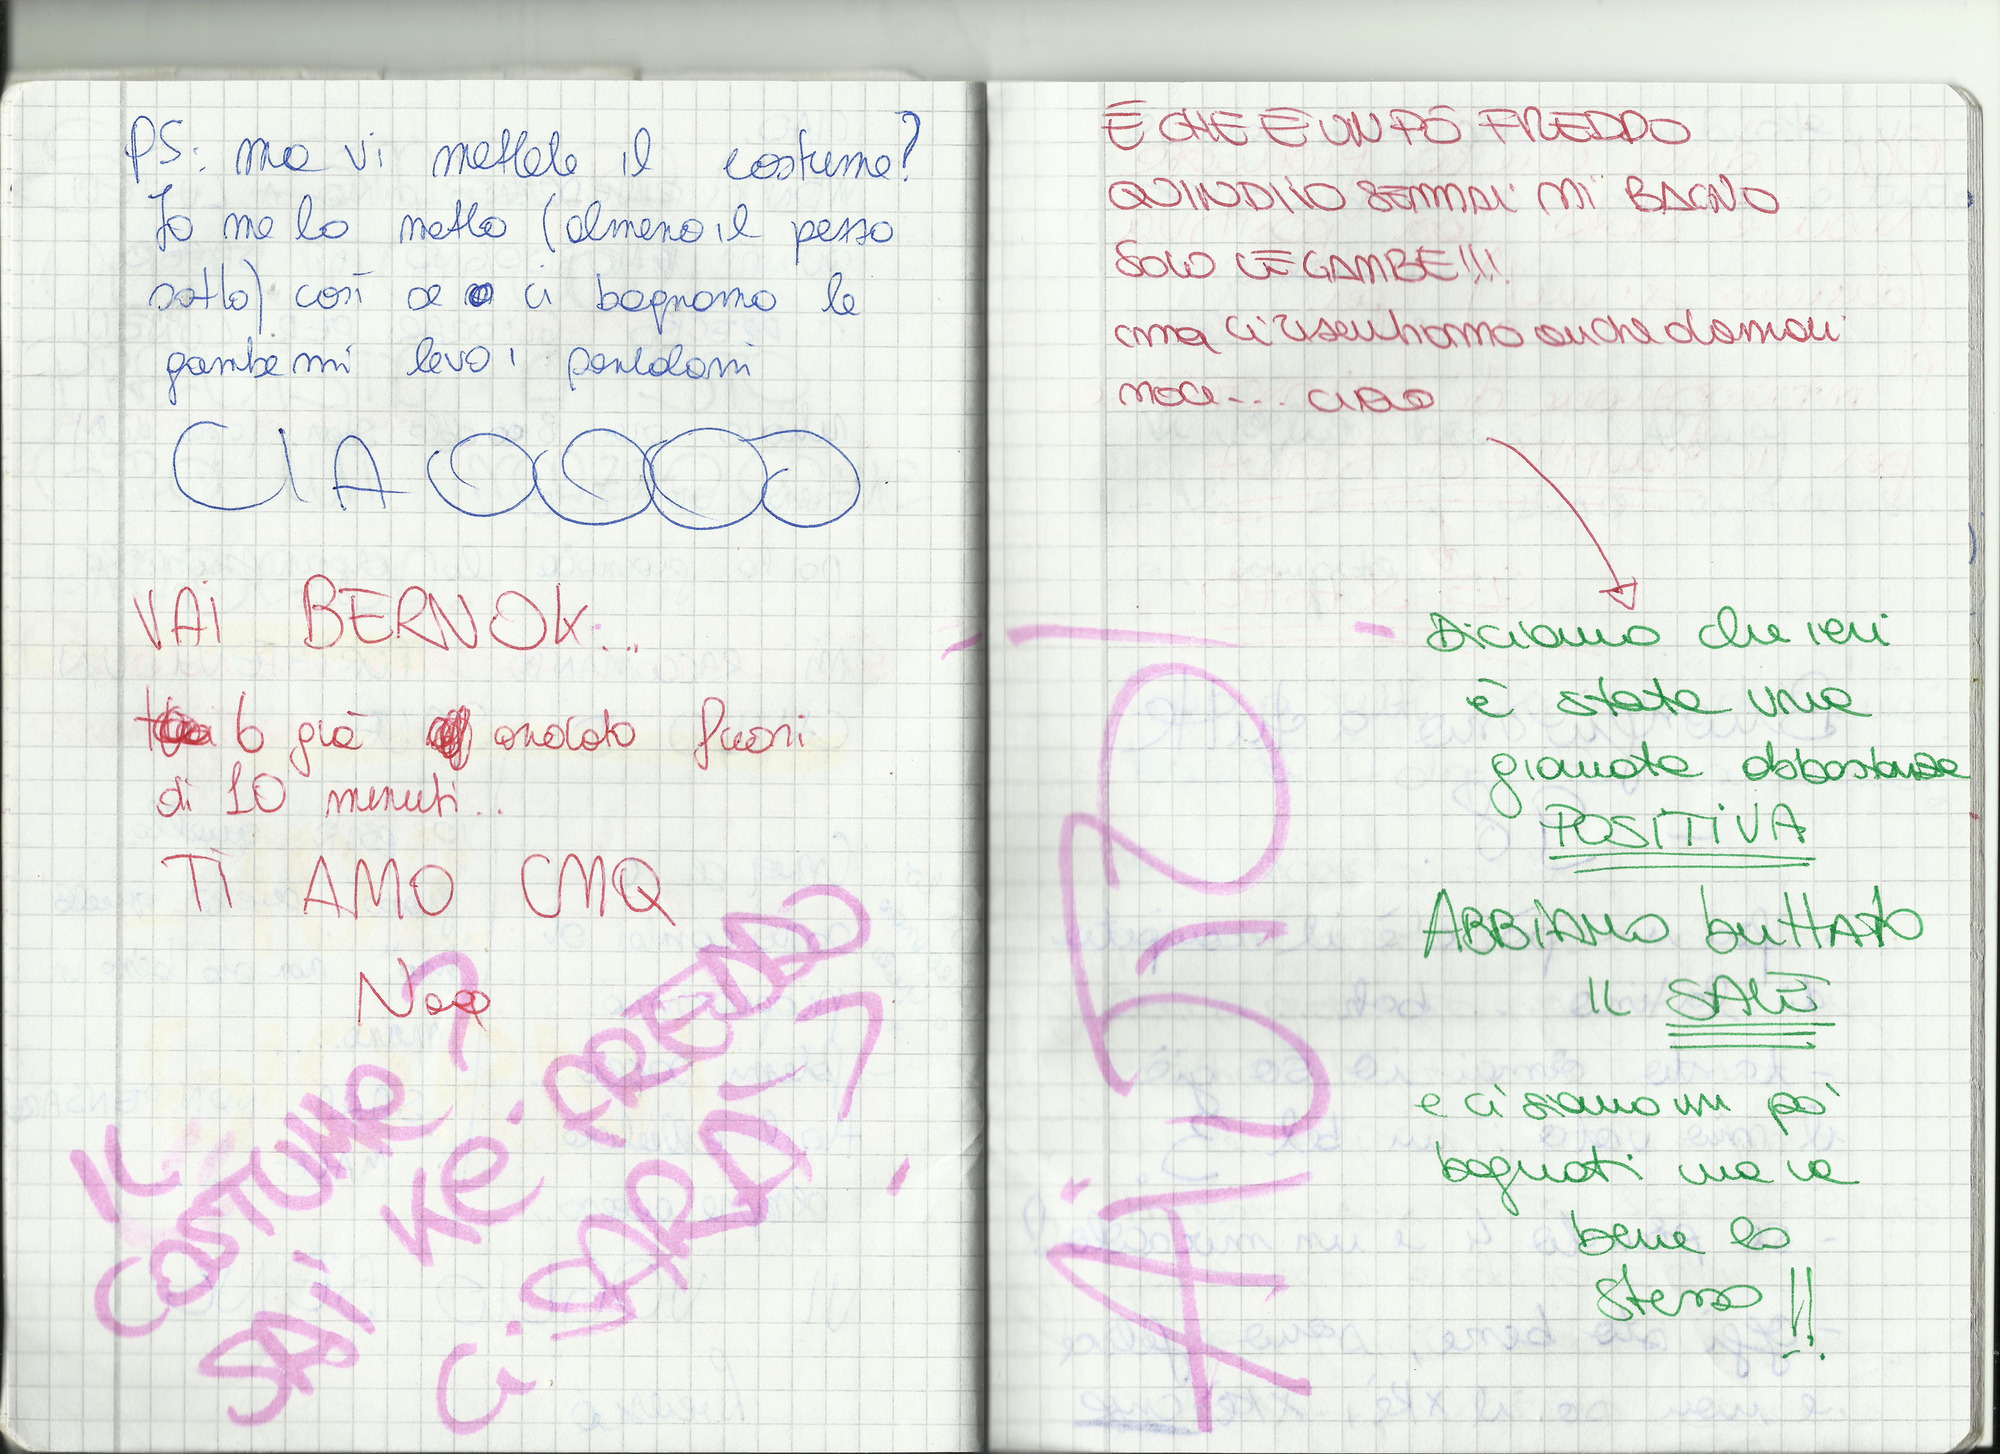 PS: ma vi mettete il costume?
Io me lo metto (almeno il pezzo
sotto) così se ci bagnamo le
gambe mi levo i pantaloni
CIAOOOO
VAI BERNOK...
6 già andato fuori
di 10 minuti..
TI AMO CMQ
IL
COSTUME?
SAI KE' FREDDO
Ci SARÀ?
È CHE È UN PÒ FREDDO
QUINDI IO SEMMAI MI BAGNO
SOLO LE GAMBE!!!!
cmq ci risentiamo anche domani
... ciao
Diciamo che ieri
è stata una
giornata abbastanza
POSITIVA
ABBIAMO buttato
IL SALE
e ci siamo un pò
bagnati ma va
bene lo
stesso!!